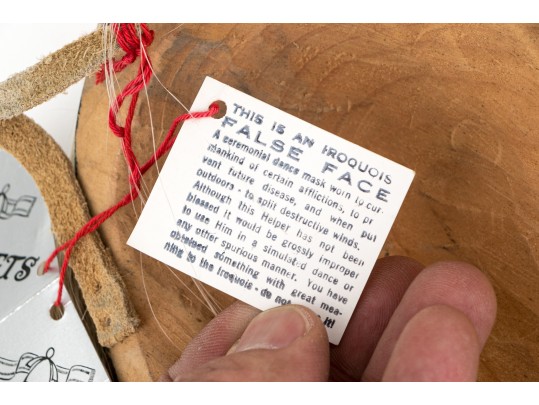 THIS IS AN IROQUOIS
FALSE FACE
A ceremonial dance mask worn to cur-
mankind of certain afflictions, to pr
vent future disease, and when put
outdoors - to split destructive winds.
Although this Helper has not been
blessed it would be grossly improper
to use Him in a simulated dance or
any other spurious manner. You have
obtained something with great mea-
ning to the Iroquois - do not it!
ETS